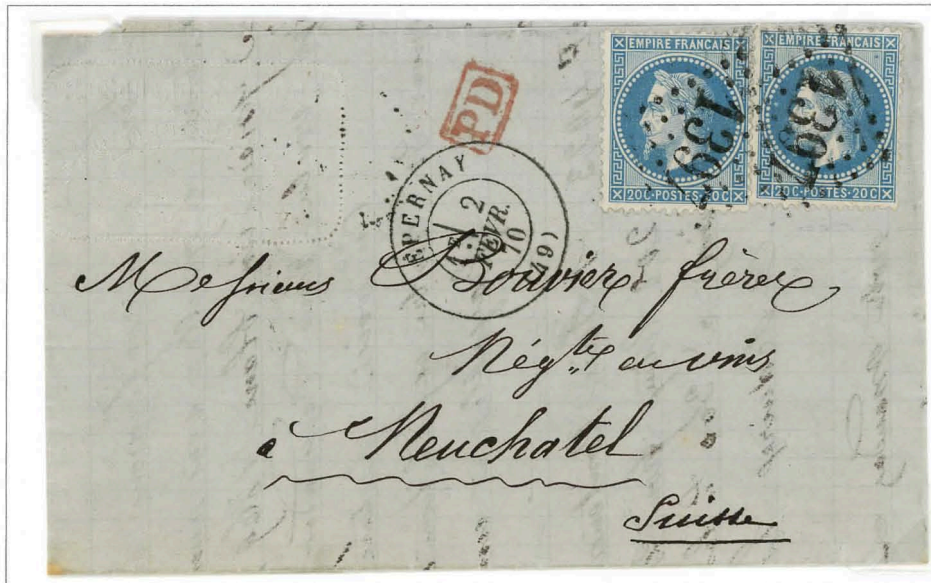 EMPIRE FRANÇAIS
20C·POSTES·20C
1397
EMPIRE FRANÇAIS
20C·POSTES·20C
1397
PD
EPERNAY
2
FEVR.
70
(49)
Messieurs Bouvier frères
Négts en vins
à Neuchatel
Suisse